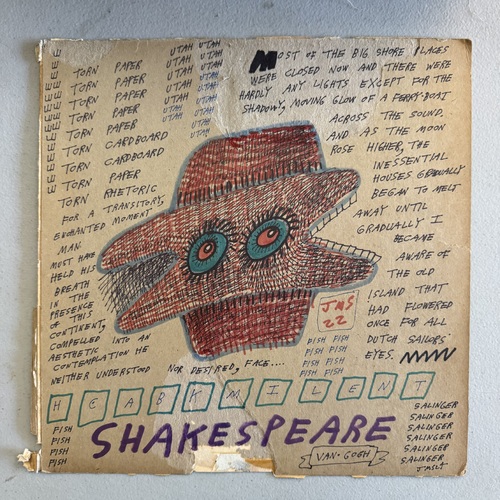 E E E E E E E E E E
TORN PAPER
TORN PAPER
TORN PAPER
TORN PAPER
TORN PAPER
TORN CARDBOARD
TORN CARDBOARD
TORN RHETORIC
FOR A TRANSITORY,
ENCHANTED MOMENT
MAN
MUST HAVE
HELD HIS
BREATH
IN THE
PRESENCE
OF THIS
CONTINENT,
COMPELLED INTO AN
AESTHETIC
CONTEMPLATION HE
NEITHER UNDERSTOOD NOR DESIRED, FACE....
UTAH UTAH
UTAH UTAH
UTAH UTAH
UTAH UTAH
UTAH UTAH
UTAH UTAH
UTAH
UTAH
MOST OF THE BIG SHORE PLACES
WERE CLOSED NOW AND THERE WERE
HARDLY ANY LIGHTS EXCEPT FOR THE
SHADOWY, MOVING GLOW OF A FERRY-BOAT
ACROSS THE SOUND.
AND AS THE MOON
ROSE HIGHER, THE
INESSENTIAL
HOUSES GRADUALLY
BEGAN TO MELT
AWAY UNTIL
GRADUALLY I
BECAME
AWARE OF
THE OLD
ISLAND THAT
HAD FLOWERED
ONCE FOR ALL
DUTCH SAILORS'
EYES.
JMS
22
FISH FISH
FISH FISH
FISH FISH
FISH FISH
H C A B K M I L E N T
FISH
FISH
FISH
FISH
SHAKESPEARE
VAN-GOGH
SALINGER
SALINGER
SALINGER
SALINGER
SALINGER
SALINGER